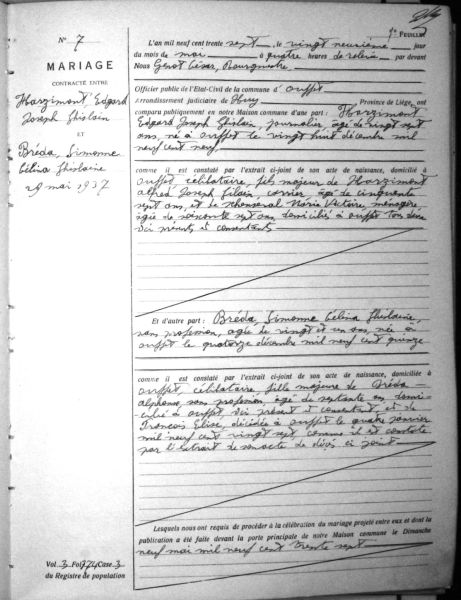 1e FEUILLET
N° 7
MARIAGE
CONTRACTÉ ENTRE
Harzimont, Edgard
Joseph Ghislain
ET
Bréda, Simonne
Célina Ghislaine
29 mai 1937
L'an mil neuf cent trente sept, le vingt neuvième jour
du mois de mai à quatre heures de relevée par devant
Nous Genot César, Bourgmestre
Officier public de l'Etat-Civil de la commune d' Ouffet
arrondissement judiciaire de Huy, Province de Liége, ont
comparu publiquement en notre Maison commune d'une part : Harzimont
Edgard Joseph Ghislain, journalier, âgé de vingt sept
ans, né à Ouffet le vingt huit décembre mil
neuf cent neuf
comme il est constaté par l'extrait ci-joint de son acte de naissance, domicilié à
Ouffet, célibataire, fils majeur de Harzimont
Alfred Joseph, carrier, âgé de cinquante
sept ans, et de Marie Victoire, ménagère,
âgée de soixante sept ans, domiciliés à Ouffet tous deux
ici présents et consentants
Et d'autre part : Bréda, Simonne Célina Ghislaine,
sans profession, âgée de vingt et un ans, née à
Ouffet le quatorze décembre mil neuf cent quinze
comme il est constaté par l'extrait ci-joint de son acte de naissance, domiciliée à
Ouffet, célibataire, fille majeure de Bréda
Alphonse, sans profession, âgé de septante ans, domi-
cilié à Ouffet, ici présent et consentant, et de
Francois Elise, décédée à Ouffet le quatre janvier
mil neuf cent vingt sept comme il est constaté
par l'extrait de son acte de décès ci joint
Lesquels nous ont requis de procéder à la célébration du mariage projeté entre eux et dont la
publication a été faite devant la porte principale de notre Maison commune le Dimanche
neuf mai mil neuf cent trente sept
Vol. 3 Fol. Case 3
du Registre de population